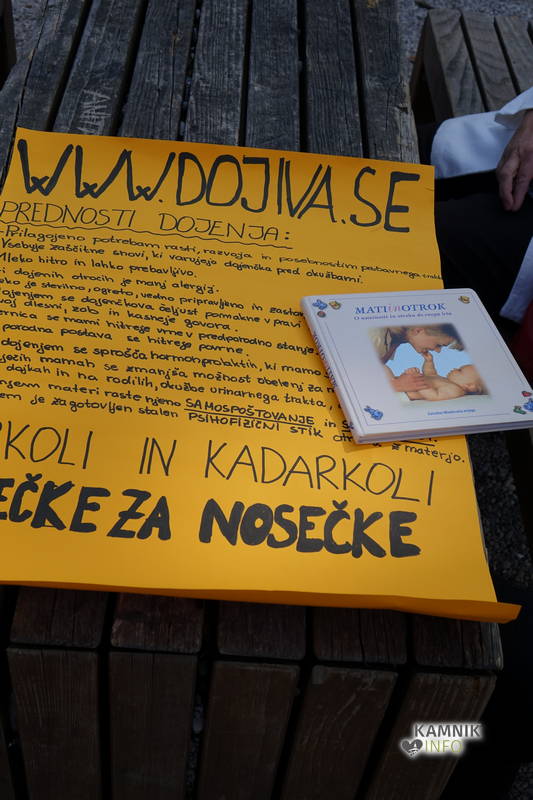 WWW.DOJIVA.SE
PREDNOSTI DOJENJA:
-Prilagojeno potrebam rasti, razvoja in posebnostim prebavnega trakta
Vsebuje zaščitne snovi, ki varujejo dojenčka pred okužbami.
Mleko hitro in lahko prebavljivo.
dojenih otrocih je manj alergij.
je sterilno, ogreto, vedno pripravljeno in zastonj
Dojenjem se dojenčkova čeljust pomakne v pravi
razvoj dlesni, zob in kasneje govora.
se namari hitreje vrne v predporodno stanje
porodna postava se hitreje povrne.
dojenjem se sprošča hormon prolaktin, ki mamo
doječih mamah se zmanjša možnost obolenj za
dojkah in na rodilih, okužbe urinarnega trakta,
materi raste njeno SAMOSPOŠTOVANJE in
je zagotovljen stalen PSIHOFIZIČNI STIK z materjo.
RKOLI IN KADARKOLI
EČKE ZA NOSEČKE
MATI IN OTROK
O materinstvi in otroku do enega leta
KAMNIK
INFO